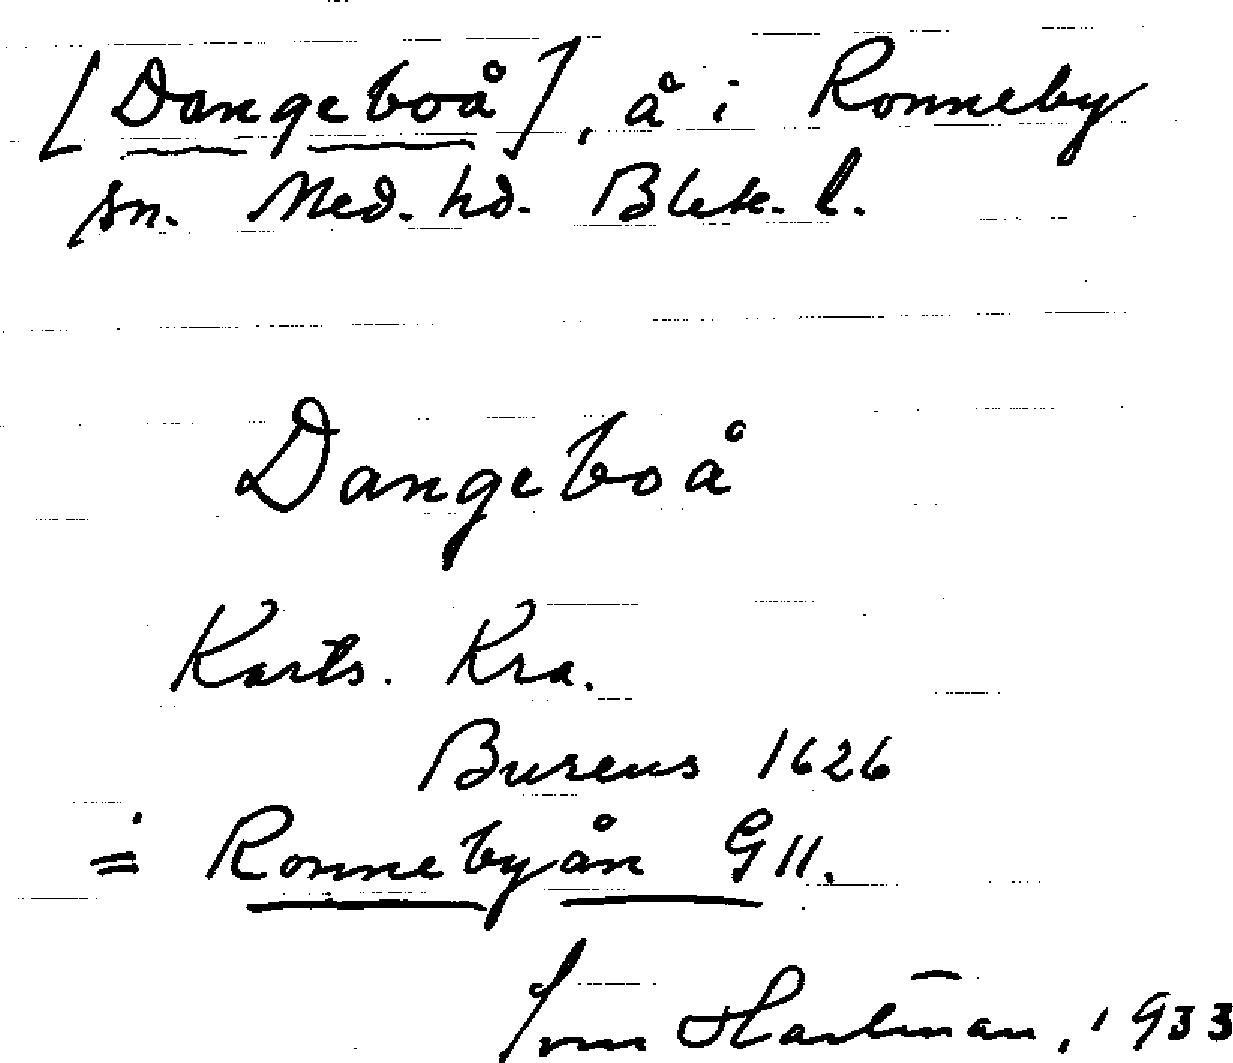 [Dangeboå], å i Ronneby
sn. Med. hd. Blek. l.
Dangeboå
Karts. Kra.
Bureus 1626
= Ronnebyån G 11.
Hartman, 1933